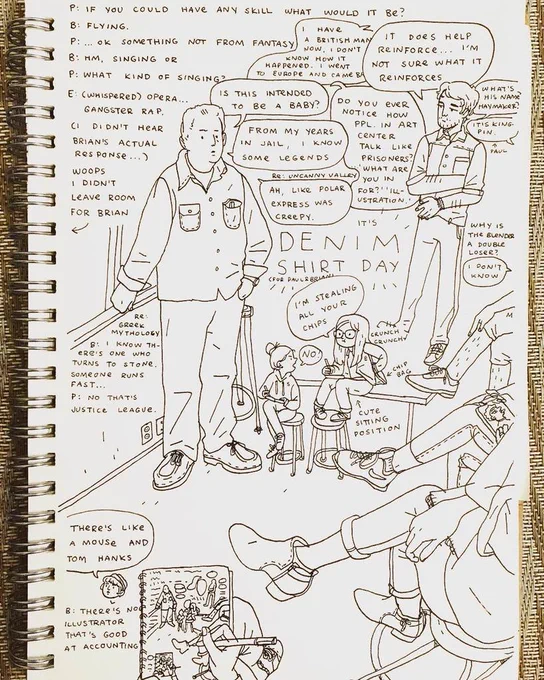 P: IF YOU COULD HAVE ANY SKILL WHAT WOULD IT BE?
B: FLYING.
P: ... OK SOMETHING NOT FROM FANTASY
B: HM, SINGING OR
P: WHAT KIND OF SINGING?
E: (WHISPERED) OPERA...
GANGSTER RAP.
(I DIDN'T HEAR
BRIAN'S ACTUAL
RESPONSE...)
WOOPS
I DIDN'T
LEAVE ROOM
FOR BRIAN
I HAVE
A BRITISH MAN
NOW, I DON'T
KNOW HOW IT
HAPPENED. I WENT
TO EUROPE AND CAME B
IT DOES HELP
REINFORCE... I'M
NOT SURE WHAT IT
REINFORCES
WHAT'S
HIS NAME
HAYMAKER?
IT'S KING
PIN.
PAUL
IS THIS INTENDED
TO BE A BABY?
DO YOU EVER
NOTICE HOW
PPL. IN ART
CENTER
TALK LIKE
PRISONERS?
WHAT ARE
YOU IN
FOR? "ILL-
USTRATION."
FROM MY YEARS
IN JAIL, I KNOW
SOME LEGENDS
RE: UNCANNY VALLEY
AH, LIKE POLAR
EXPRESS WAS
CREEPY.
IT'S
DENIM
SHIRT DAY
(FOR PAUL & BRIAN)
WHY IS
THE BLENDER
A DOUBLE
LOSER?
I DON'T
KNOW
I'M STEALING
ALL YOUR
CHIPS
CRUNCH
CRUNCH
NO!
CHIP
BAG
CUTE
SITTING
POSITION
RE:
GREEK
MYTHOLOGY
B: I KNOW TH-
ERE'S ONE WHO
TURNS TO STONE,
SOMEONE RUNS
FAST...
P: NO THAT'S
JUSTICE LEAGUE.
THERE'S LIKE
A MOUSE AND
TOM HANKS
B: THERE'S NO
ILLUSTRATOR
THAT'S GOOD
AT ACCOUNTING